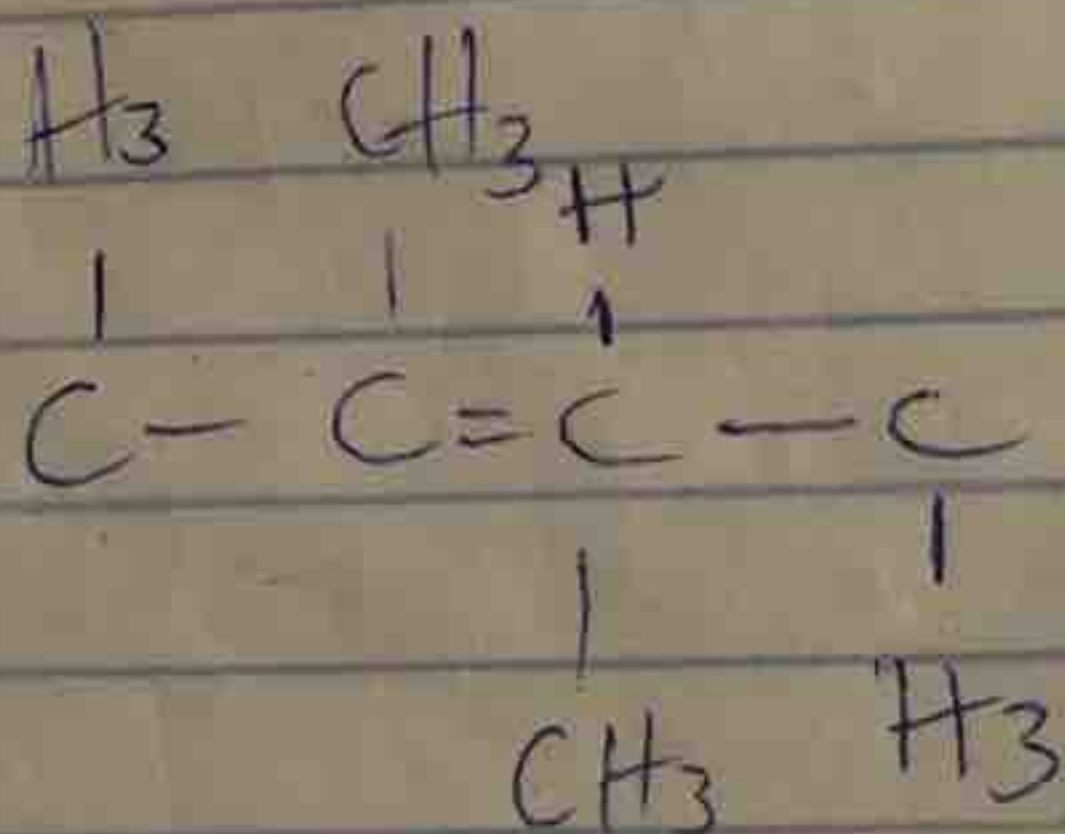 H3 CH3
H
| | |
C - C = C - C
| |
CH3 H3